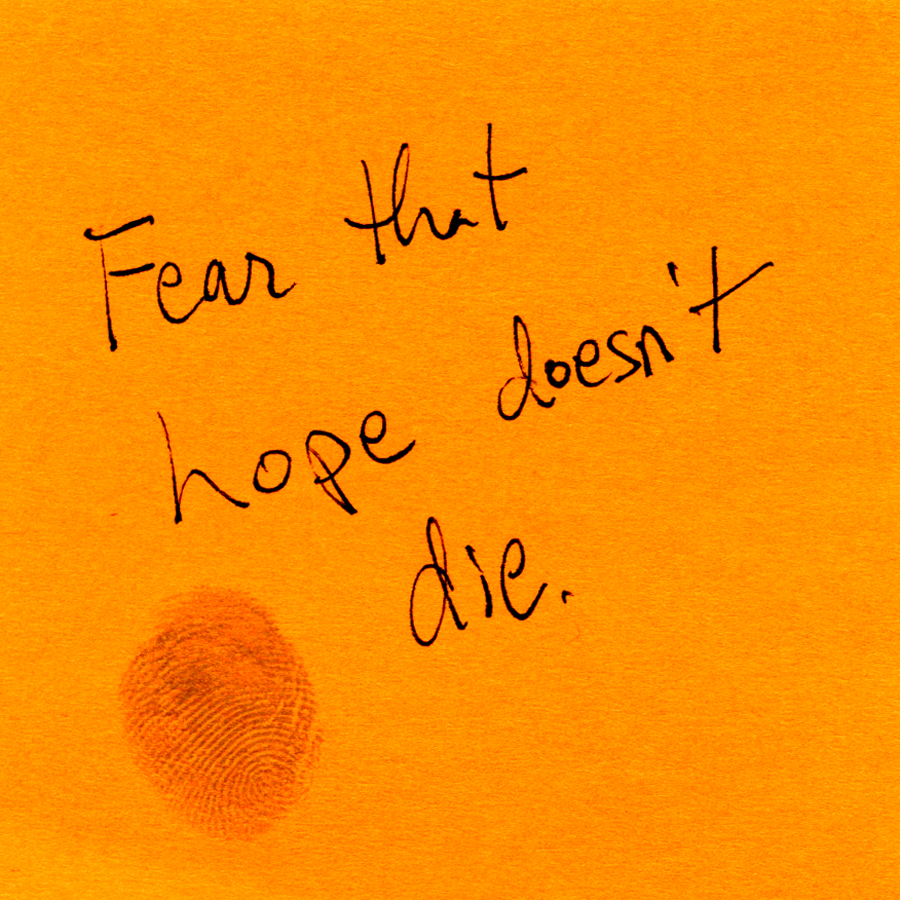 Fear that
hope doesn't
die.